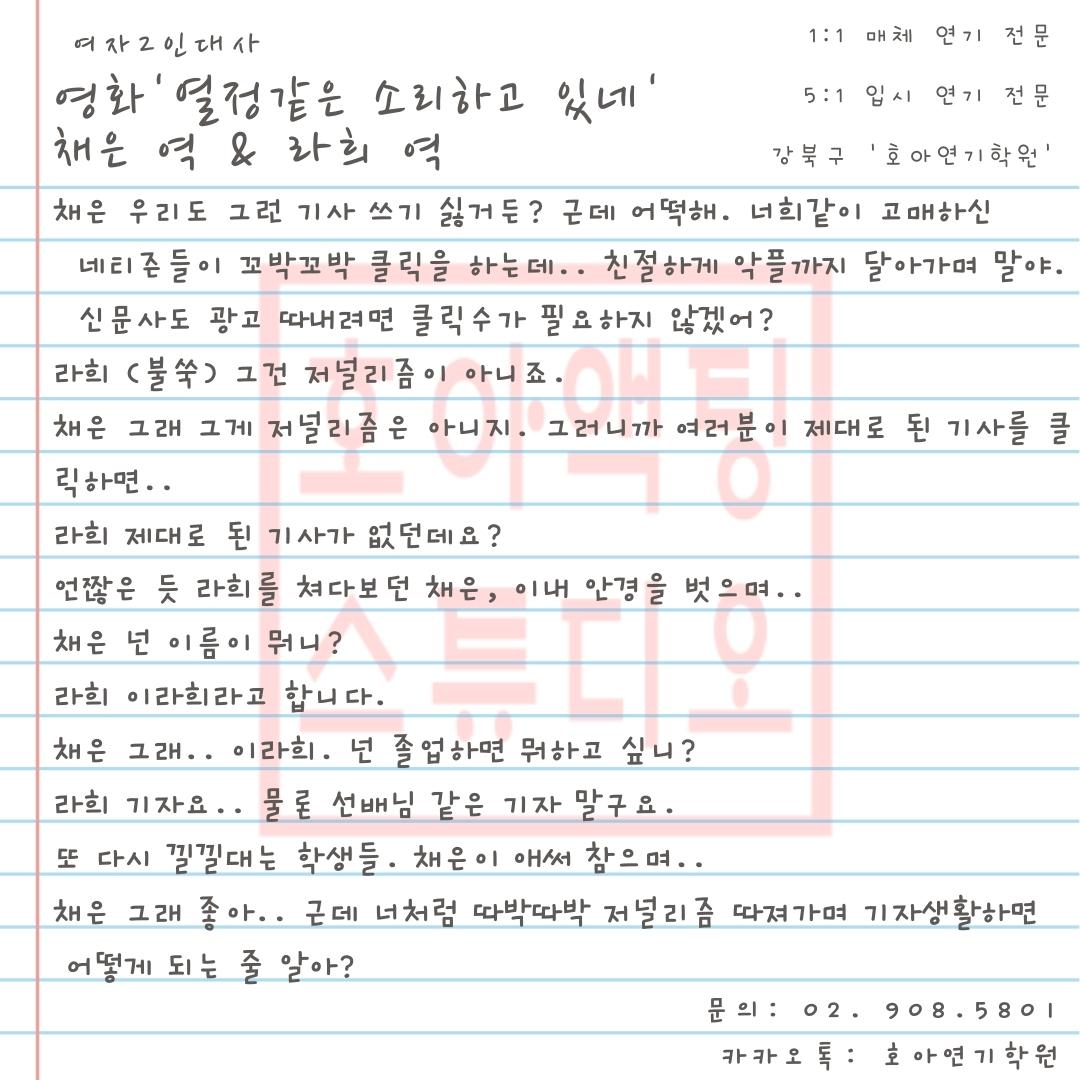 여자2인대사
영화'열정같은 소리하고 있네'
채은 역 & 라희 역
1:1 매체 연기 전문
5:1 입시 연기 전문
강북구 '호아연기학원'
채은 우리도 그런 기사 쓰기 싫거든? 근데 어떡해. 너희같이 고매하신
네티즌들이 꼬박꼬박 클릭을 하는데.. 친절하게 악플까지 달아가며 말야.
신문사도 광고 따내려면 클릭수가 필요하지 않겠어?
라희 (불쑥) 그건 저널리즘이 아니죠.
채은 그래 그게 저널리즘은 아니지. 그러니까 여러분이 제대로 된 기사를 클
릭하면..
라희 제대로 된 기사가 없던데요?
언짢은 듯 라희를 쳐다보던 채은, 이내 안경을 벗으며..
채은 넌 이름이 뭐니?
라희 이라희라고 합니다.
채은 그래.. 이라희. 넌 졸업하면 뭐하고 싶니?
라희 기자요.. 물론 선배님 같은 기자 말구요.
또 다시 낄낄대는 학생들. 채은이 애써 참으며..
채은 그래 좋아.. 근데 너처럼 따박따박 저널리즘 따져가며 기자생활하면
어떻게 되는 줄 알아?
문의: 02. 908.5801
카카오톡: 호아연기학원
호아액팅
스튜디오